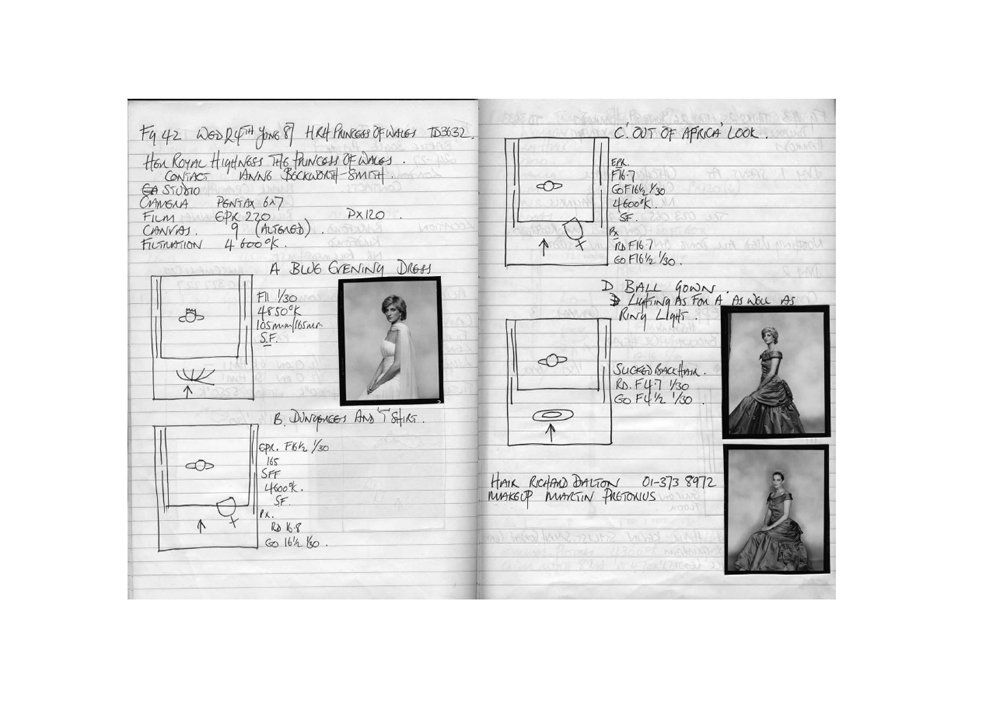 WED 24TH JUNE 87 HRH PRINCESS OF WALES TD3632.
HER ROYAL HIGHNESS THE PRINCESS OF WALES.
CONTACT ANNE BECKWORTH-SMITH.
STUDIO
CAMERA PENTAX 6x7
FILM EPR 220 PX120.
CANVAS. 9 (ALTERED).
FILTRATION 4600°K.
A BLUE EVENING DRESS
F11 1/30
4850°K
105mm/165mm
S.F.
B. DUNGAREES AND 'T' SHIRT.
EPR. F16½ 1/30
165
SFF
4600°K.
SF.
PX.
RD 16.8
GO 16½ 1/30.
C. 'OUT OF AFRICA' LOOK.
EPR.
F16.7
GO F16½ 1/30
4600°K.
SF.
PX
RD F16.7
GO F16½ 1/30.
D BALL GOWN.
LIGHTING AS FOR A AS WELL AS
RING LIGHT.
SLICKED BACK HAIR.
RD. F4.7 1/30
GO F4½ 1/30.
HAIR RICHARD DALTON 01-373 8972
MAKEUP MARTIN PRETORIUS